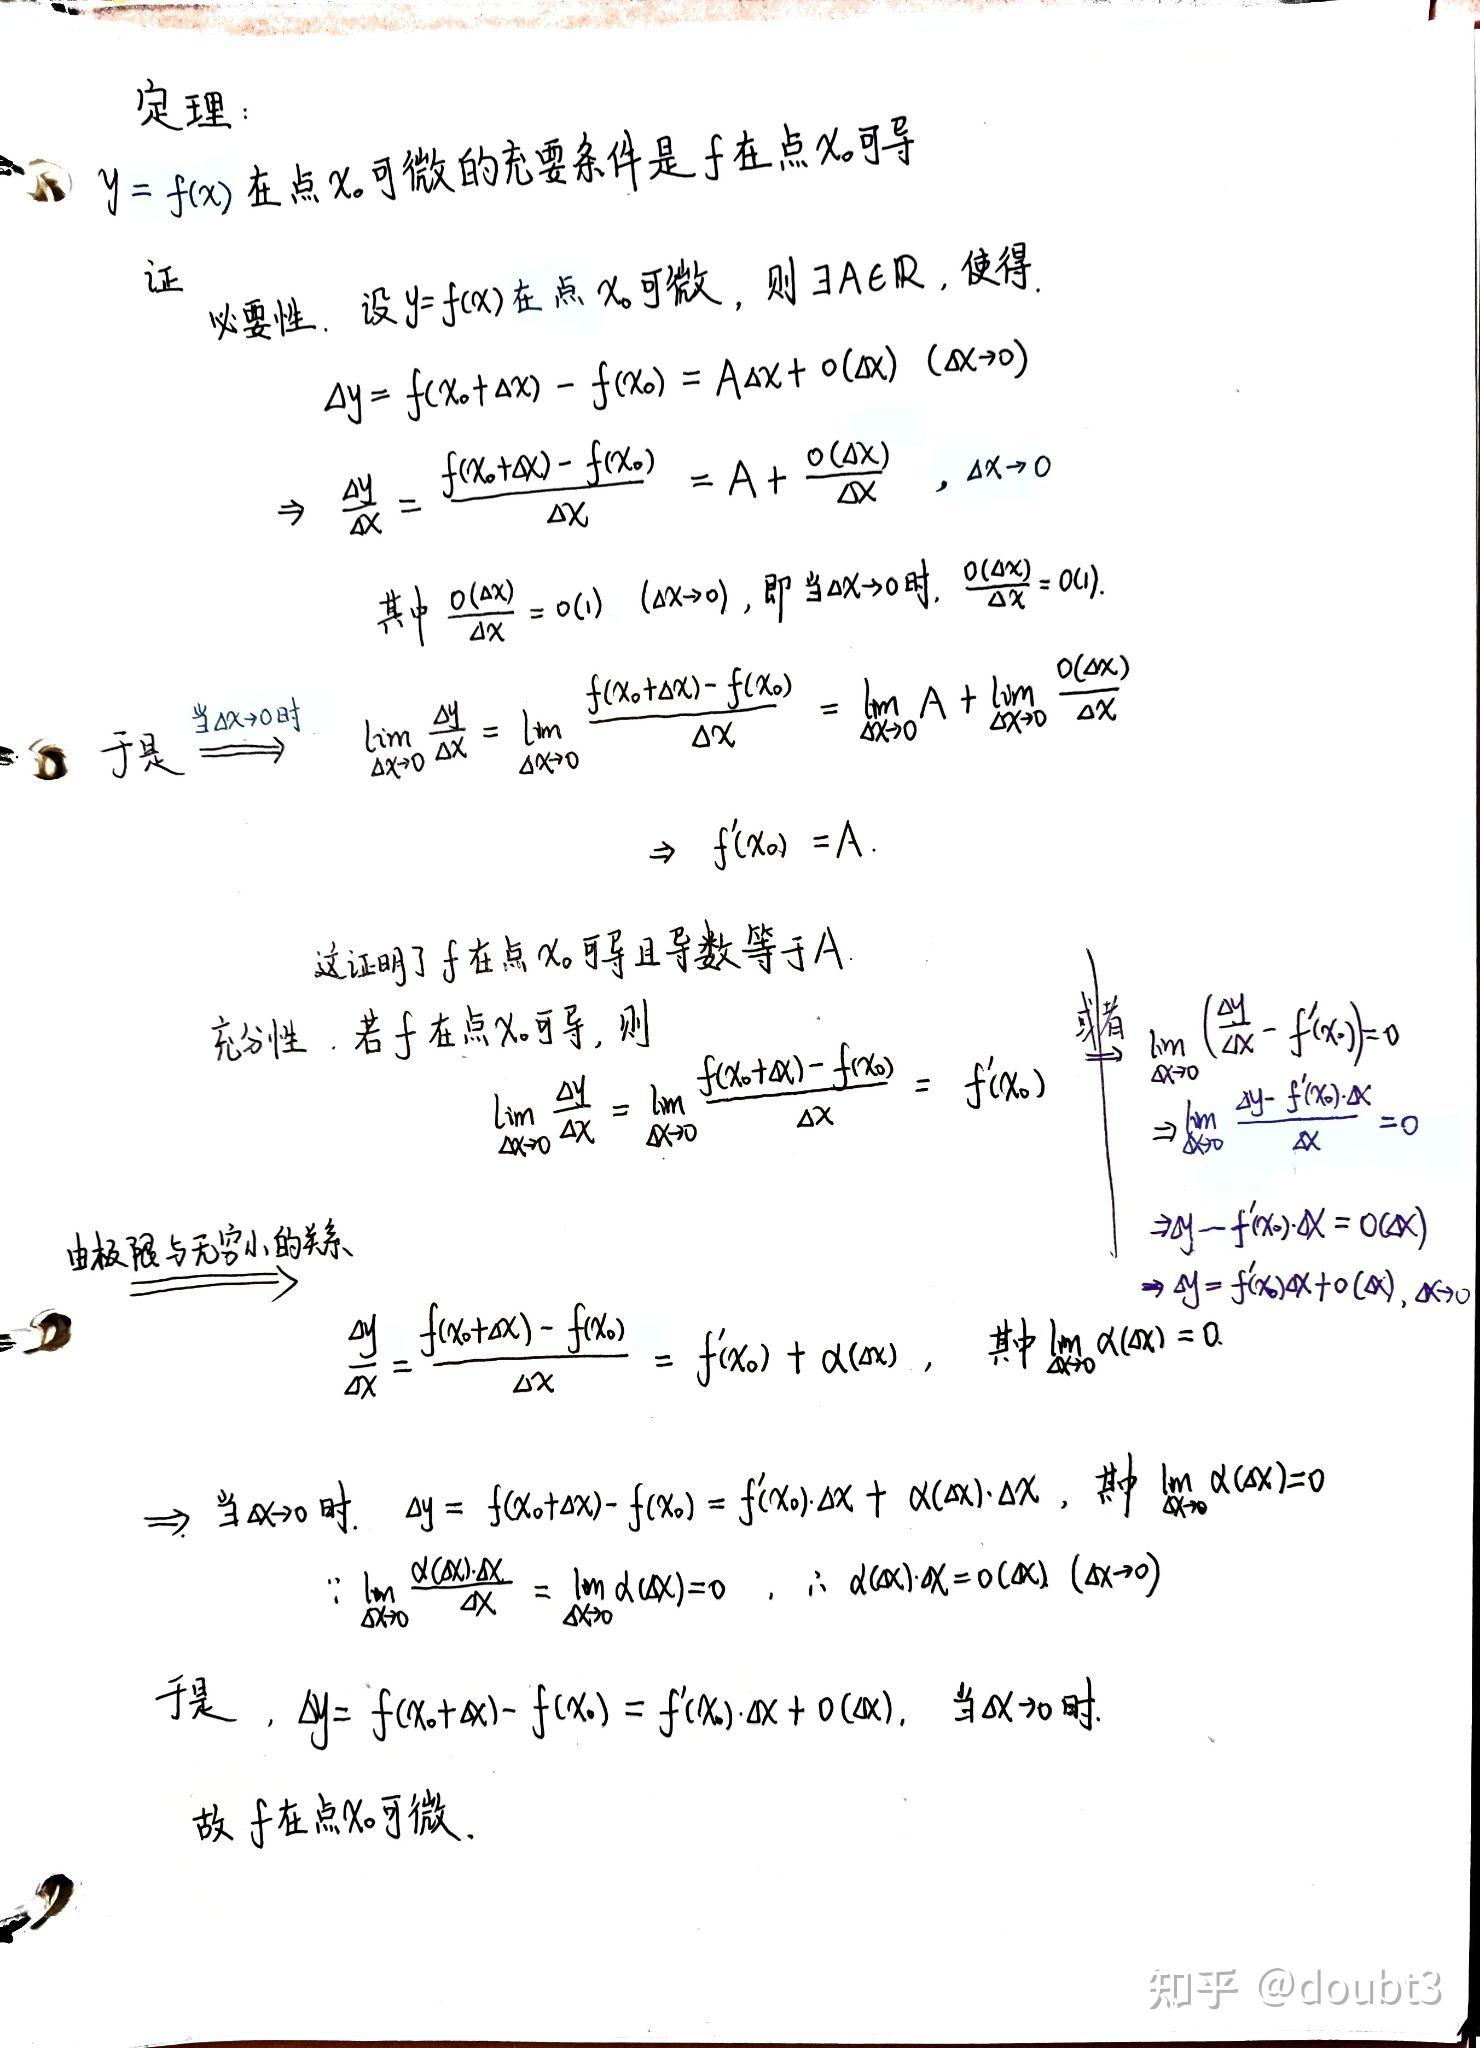 定理:
y = f(x) 在点 x₀ 可微的充要条件是 f 在点 x₀ 可导
证
必要性. 设 y=f(x) 在点 x₀ 可微, 则 ∃A∈ℝ, 使得.
Δy = f(x₀+Δx) - f(x₀) = AΔx + o(Δx) (Δx→0)
⇒ Δy/Δx = (f(x₀+Δx) - f(x₀))/Δx = A + o(Δx)/Δx , Δx→0
其中 o(Δx)/Δx = o(1) (Δx→0), 即当Δx→0时. o(Δx)/Δx = o(1).
于是 当Δx→0时 ⟹ lim_{Δx→0} Δy/Δx = lim_{Δx→0} (f(x₀+Δx) - f(x₀))/Δx = lim_{Δx→0} A + lim_{Δx→0} o(Δx)/Δx
⇒ f′(x₀) = A.
这证明了 f 在点 x₀ 可导且导数等于 A.
充分性. 若 f 在点 x₀ 可导, 则
lim_{Δx→0} Δy/Δx = lim_{Δx→0} (f(x₀+Δx) - f(x₀))/Δx = f′(x₀)
或者 ⇒ lim_{Δx→0} (Δy/Δx - f′(x₀)) = 0
⇒ lim_{Δx→0} (Δy - f′(x₀)·Δx)/Δx = 0
⇒ Δy - f′(x₀)·Δx = o(Δx)
⇒ Δy = f′(x₀)Δx + o(Δx), Δx→0
由极限与无穷小的关系 ⟹
Δy/Δx = (f(x₀+Δx) - f(x₀))/Δx = f′(x₀) + α(Δx), 其中 lim_{Δx→0} α(Δx) = 0.
⇒ 当Δx→0时. Δy = f(x₀+Δx) - f(x₀) = f′(x₀)·Δx + α(Δx)·Δx, 其中 lim_{Δx→0} α(Δx)=0
∵ lim_{Δx→0} α(Δx)·Δx/Δx = lim_{Δx→0} α(Δx)=0 , ∴ α(Δx)·Δx = o(Δx). (Δx→0)
于是, Δy = f(x₀+Δx) - f(x₀) = f′(x₀)·Δx + o(Δx), 当Δx→0时.
故 f 在点 x₀ 可微.
知乎 @doubt3